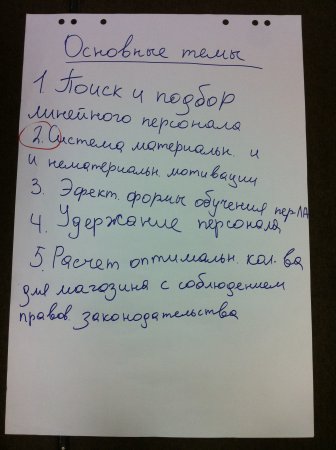 Основные темы
1 Поиск и подбор
линейного персонала
2. Система материальн. и
и нематериальн. мотивации
3. Эфект. формы обучения пер-ЛА
4. Удержание персонала
5. Расчет оптимальн. кол-ва
для магазина с соблюдением
правов. законодательства